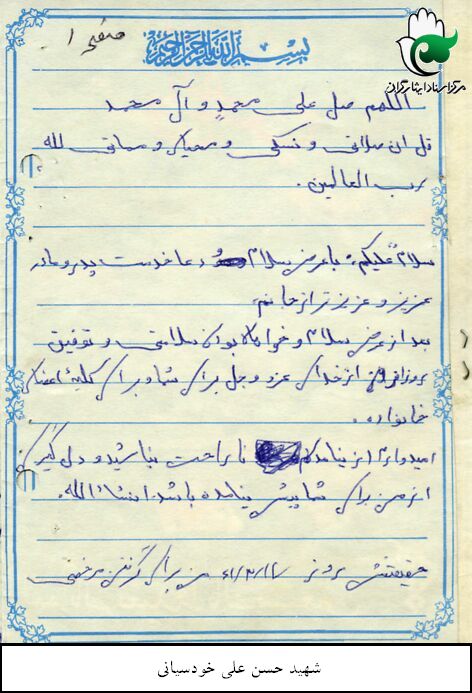 صفحه ۱
بسم الله الرحمن الرحیم
مرکز اسناد ایثارگران
اللهم صل علی محمدٍ و آل محمد
قل ان صلاتی و نسکی و محیای و مماتی لله
رب العالمین.
سلامٌ علیکم، با عرض سلام و دعا خدمت پدر و مادر
عزیز و عزیزتر از جانم.
بعد از عرض سلام و خواهان بودن سلامتی و توفیق
روزافزون از خدای عز و جل برای شما و برای کلیه اعضای
خانواده.
امیدوارم از نیامدنم ناراحت نباشید و دلگیری
از من برای شما پیش نیامده باشد. انشاءالله.
حقیقتش روز من برای گرفتن مرخصی
شهید حسن علی خودسیانی